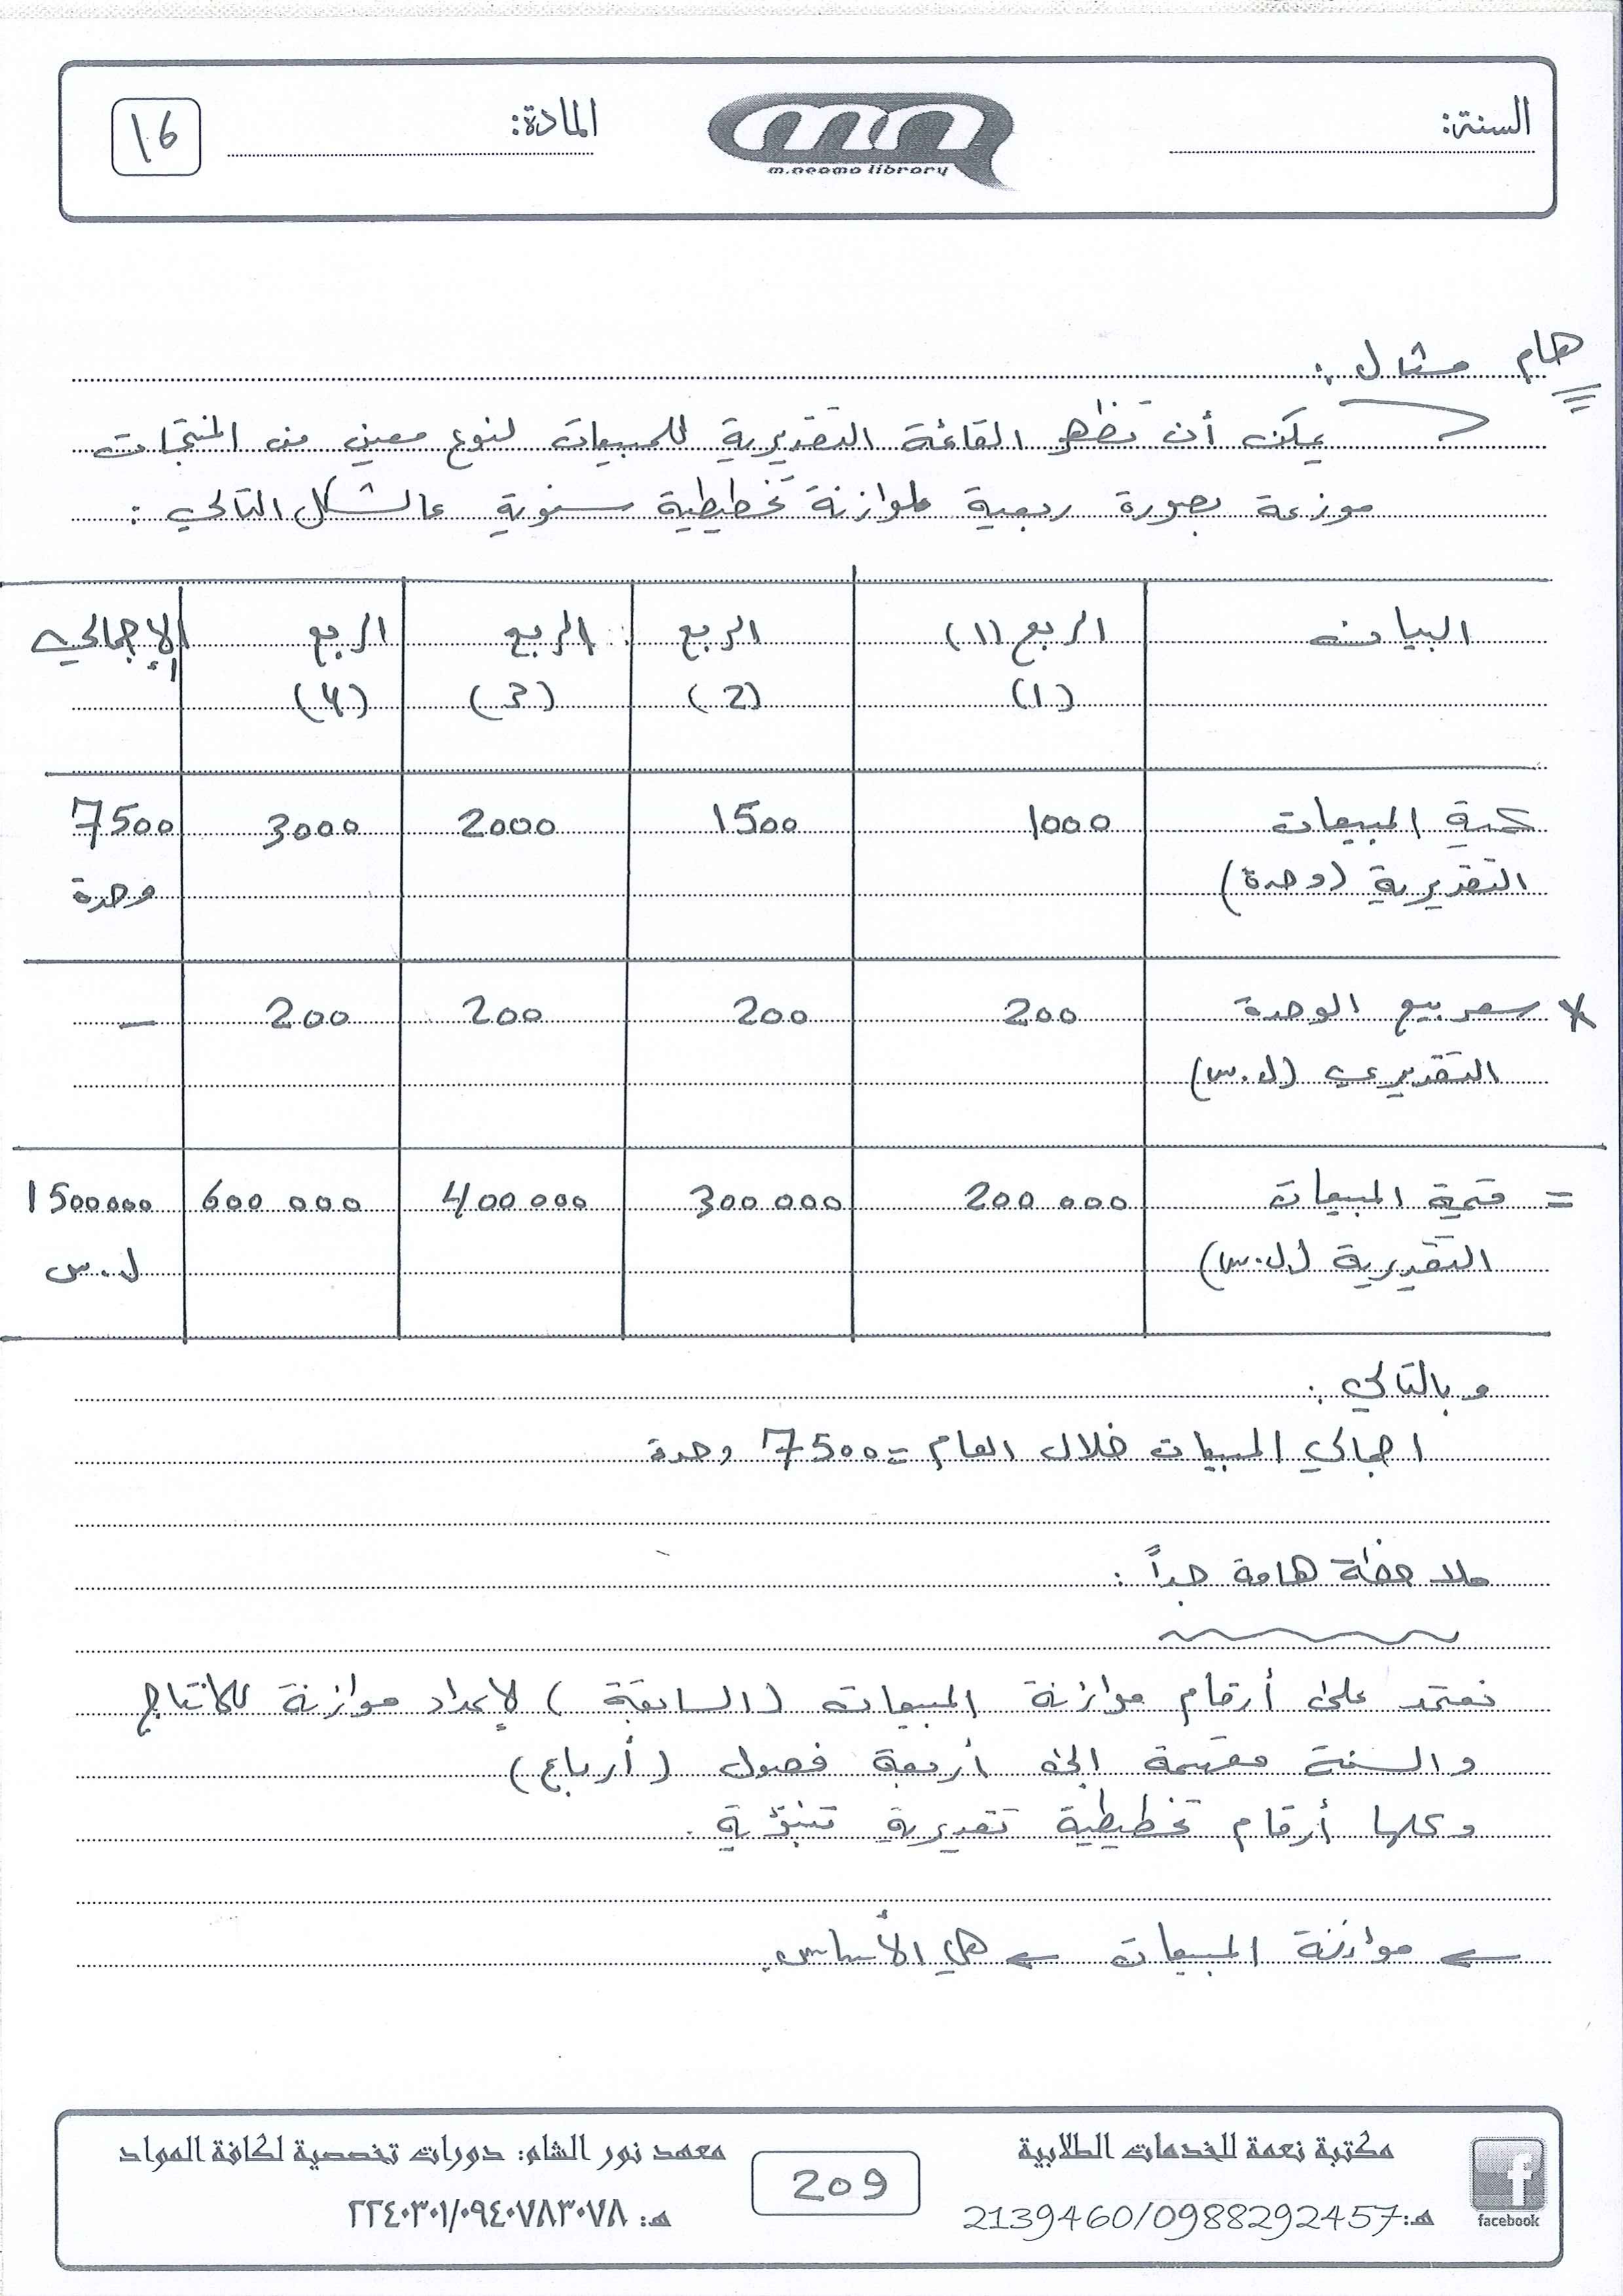 السنة:
m.neama library
المادة:
16
هام مثال :
يمكن أن تظهر القائمة التقديرية للمبيعات لنوع معين من المنتجات
موزعة بصورة ربعية لموازنة تخطيطية سنوية كالشكل التالي :
البيان الربع (1) الربع الربع الربع الإجمالي
(1) (2) (3) (4)
كمية المبيعات 1000 1500 2000 3000 7500
التقديرية (وحدة) وحدة
× سعر بيع الوحدة 200 200 200 200 —
التقديري (ل.س)
= قيمة المبيعات 200000 300000 400000 600000 1500000
التقديرية (ل.س) ل.س
وبالتالي :
اجمالي المبيعات خلال العام = 7500 وحدة
ملاحظة هامة جداً :
نعتمد على أرقام موازنة المبيعات (السابقة) لإعداد موازنة للانتاج
والسنة مقسمة إلى أربعة فصول (أرباع)
وكلها أرقام تخطيطية تقديرية تنبؤية .
← موازنة المبيعات ← هي الأساس.
facebook
مكتبة نعمة للخدمات الطلابية
هـ: 2139460/0988292457
209
معهد نور الشام: دورات تخصصية لكافة المواد
هـ: ٢٢٤٠٣٠١/٠٩٤٠٧٨٣٠٧٨